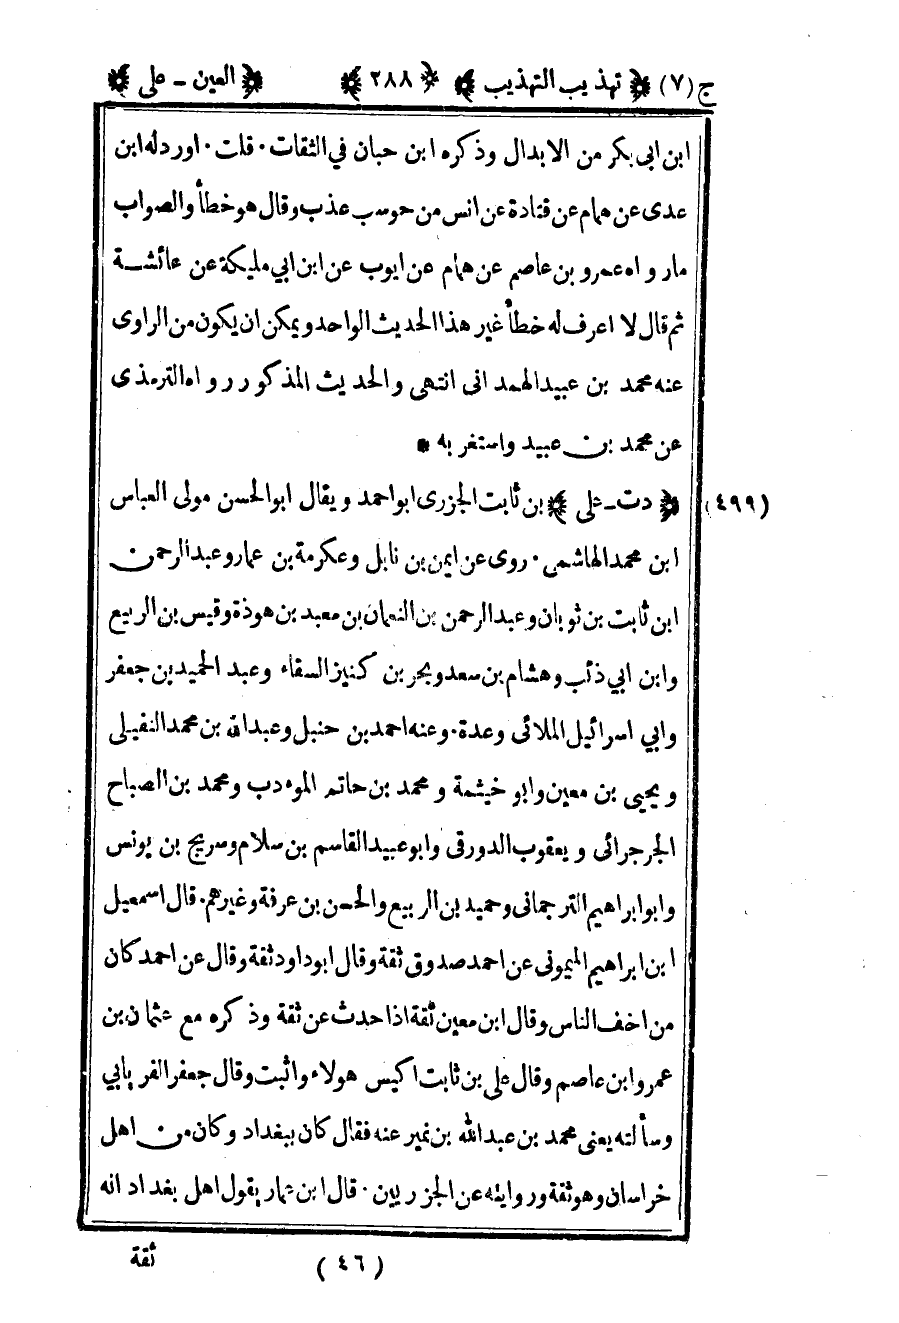 ج (٧) ﴿ تهذيب التهذيب ﴾ ﴿ ٢٨٨ ﴾ ﴿ العين - على ﴾
ابن ابى بكر من الابدال وذكره ابن حبان في الثقات · قلت · اورد له ابن
عدى عن همام عن قتادة عن انس من حوسب عذب وقال هو خطأ والصواب
مارواه عمرو بن عاصم عن همام عن ايوب عن ابن ابي مليكة عن عائشة
ثم قال لا اعرف له خطأ غير هذا الحديث الواحد ويمكن ان يكون من الراوى
عنه محمد بن عبيد الهمدانى انتهى والحديث المذكور رواه الترمذى
عن محمد بن عبيد واستغربه *
(٤٩٩) ﴿ دت - على ﴾ بن ثابت الجزرى ابو احمد ويقال ابو الحسن مولى العباس
ابن محمد الهاشمى · روى عن ايمن بن نابل وعكرمة بن عمار وعبد الرحمن
ابن ثابت بن ثوبان وعبد الرحمن بن النعمان بن معبد بن هوذة وقيس بن الربيع
وابن ابي ذئب وهشام بن سعد وبحر بن كنيز السقاء وعبد الحميد بن جعفر
وابي اسرائيل الملائى وعدة · وعنه احمد بن حنبل وعبد الله بن محمد النفيلى
ويحيى بن معين وابو خيثمة ومحمد بن حاتم المؤدب ومحمد بن الصباح
الجرجرائى ويعقوب الدورقى وابو عبيد القاسم بن سلام وسريج بن يونس
وابو ابراهيم الترجمانى وحميد بن الربيع والحسن بن عرفة وغيرهم · قال اسمعيل
ابن ابراهيم الميمونى عن احمد صدوق ثقة وقال ابوداود ثقة وقال عن احمد كان
من اخف الناس وقال ابن معين ثقة اذا حدث عن ثقة وذكره مع عثمان بن
عمرو ابن عاصم وقال على بن ثابت اكيس هولاء واثبت وقال جعفر الفريابي
وسألته يعنى محمد بن عبد الله بن نمير عنه فقال كان ببغداد وكان من اهل
خراسان وهو ثقة وروايته عن الجزريين · قال ابن عمار يقول اهل بغداد انه
(٤٦) ثقة